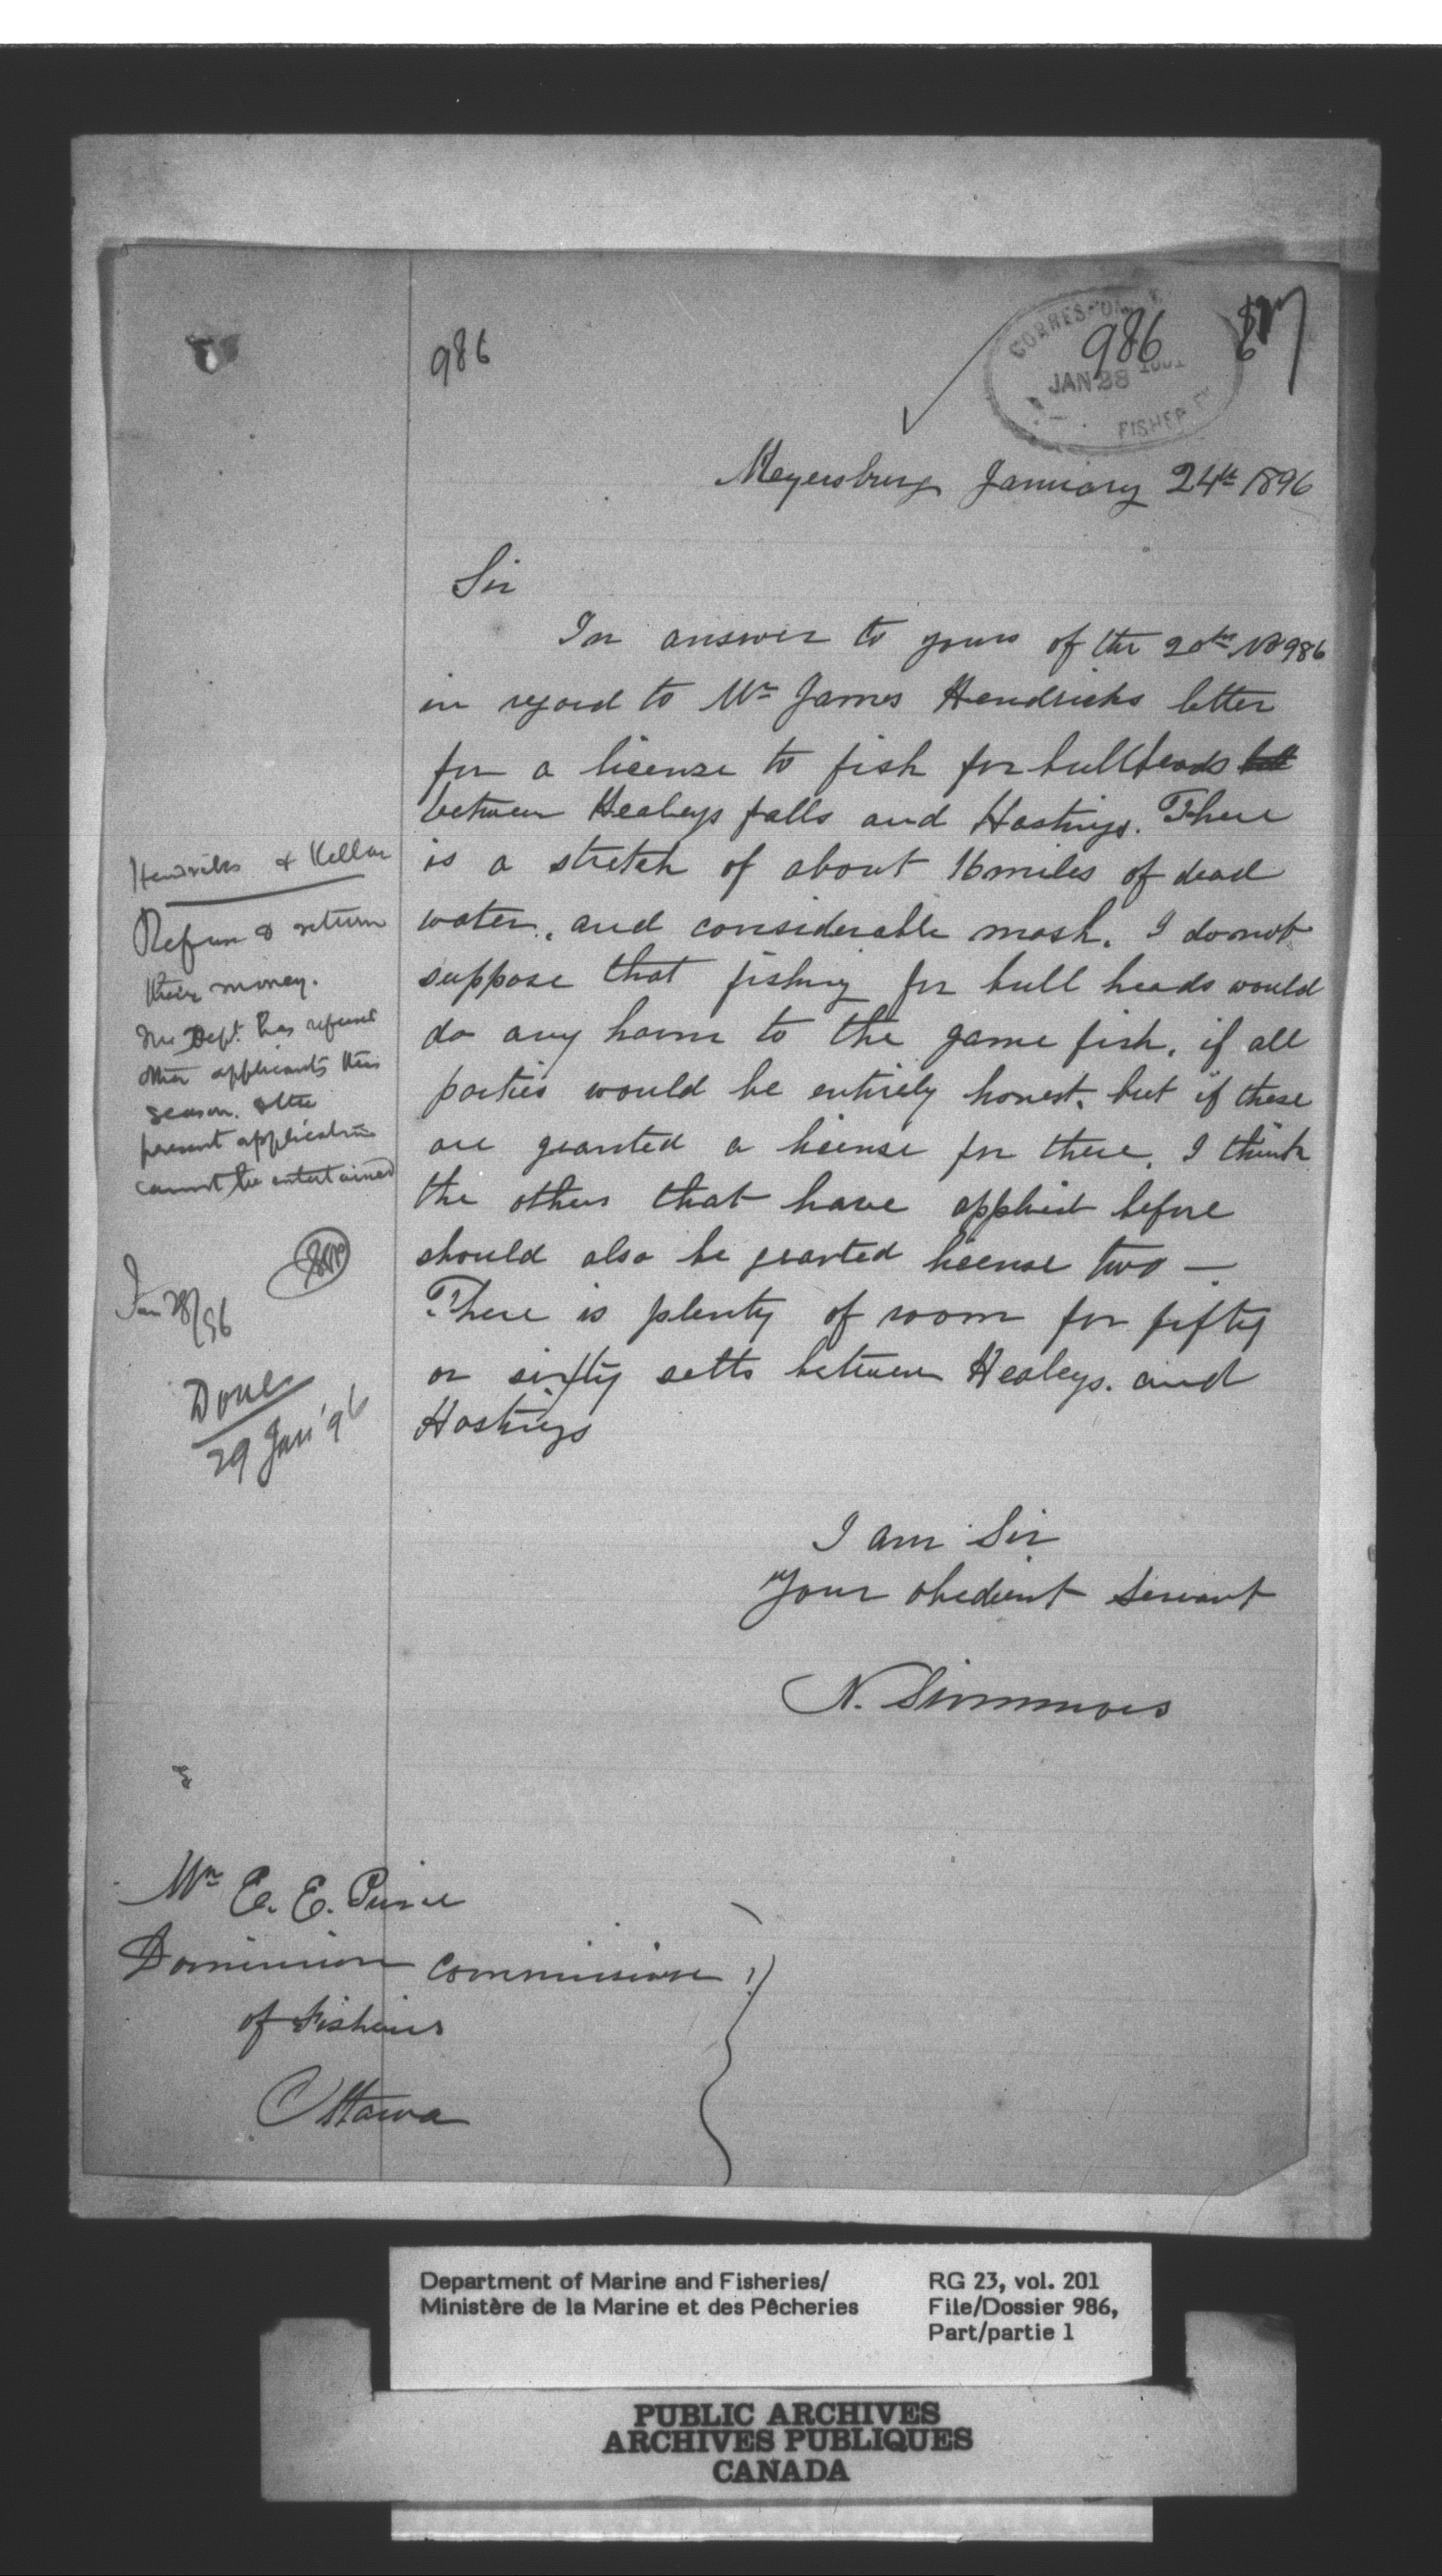 986
CORRESPON
986
JAN 28
FISHER
Meyersburg January 24th 1896
Sir
In answer to yours of the 20th No 986
in regard to Mr James Hendricks letter
for a license to fish for bullheads
between Healeys falls and Hastings. There
is a stretch of about 16 miles of dead
water, and considerable mash. I do not
suppose that fishing for bull heads would
do any harm to the game fish, if all
parties would be entirely honest, but if these
are granted a license for there, I think
the others that have applied before
should also be granted license two —
There is plenty of room for fifty
or sixty setts between Healeys. and
Hastings
I am Sir
Your obedient Servant
N. Simmons
Hendricks & Kellar
Refuse & return
their money.
The Dept. has refused
other applicants this
season. & the
present application
cannot be entertained
Jan 28/96
Done
29 Jan '96
Mr E. E. Prince
Dominion Commissioner
of Fisheries
Ottawa
Department of Marine and Fisheries/
Ministère de la Marine et des Pêcheries
RG 23, vol. 201
File/Dossier 986,
Part/partie 1
PUBLIC ARCHIVES
ARCHIVES PUBLIQUES
CANADA